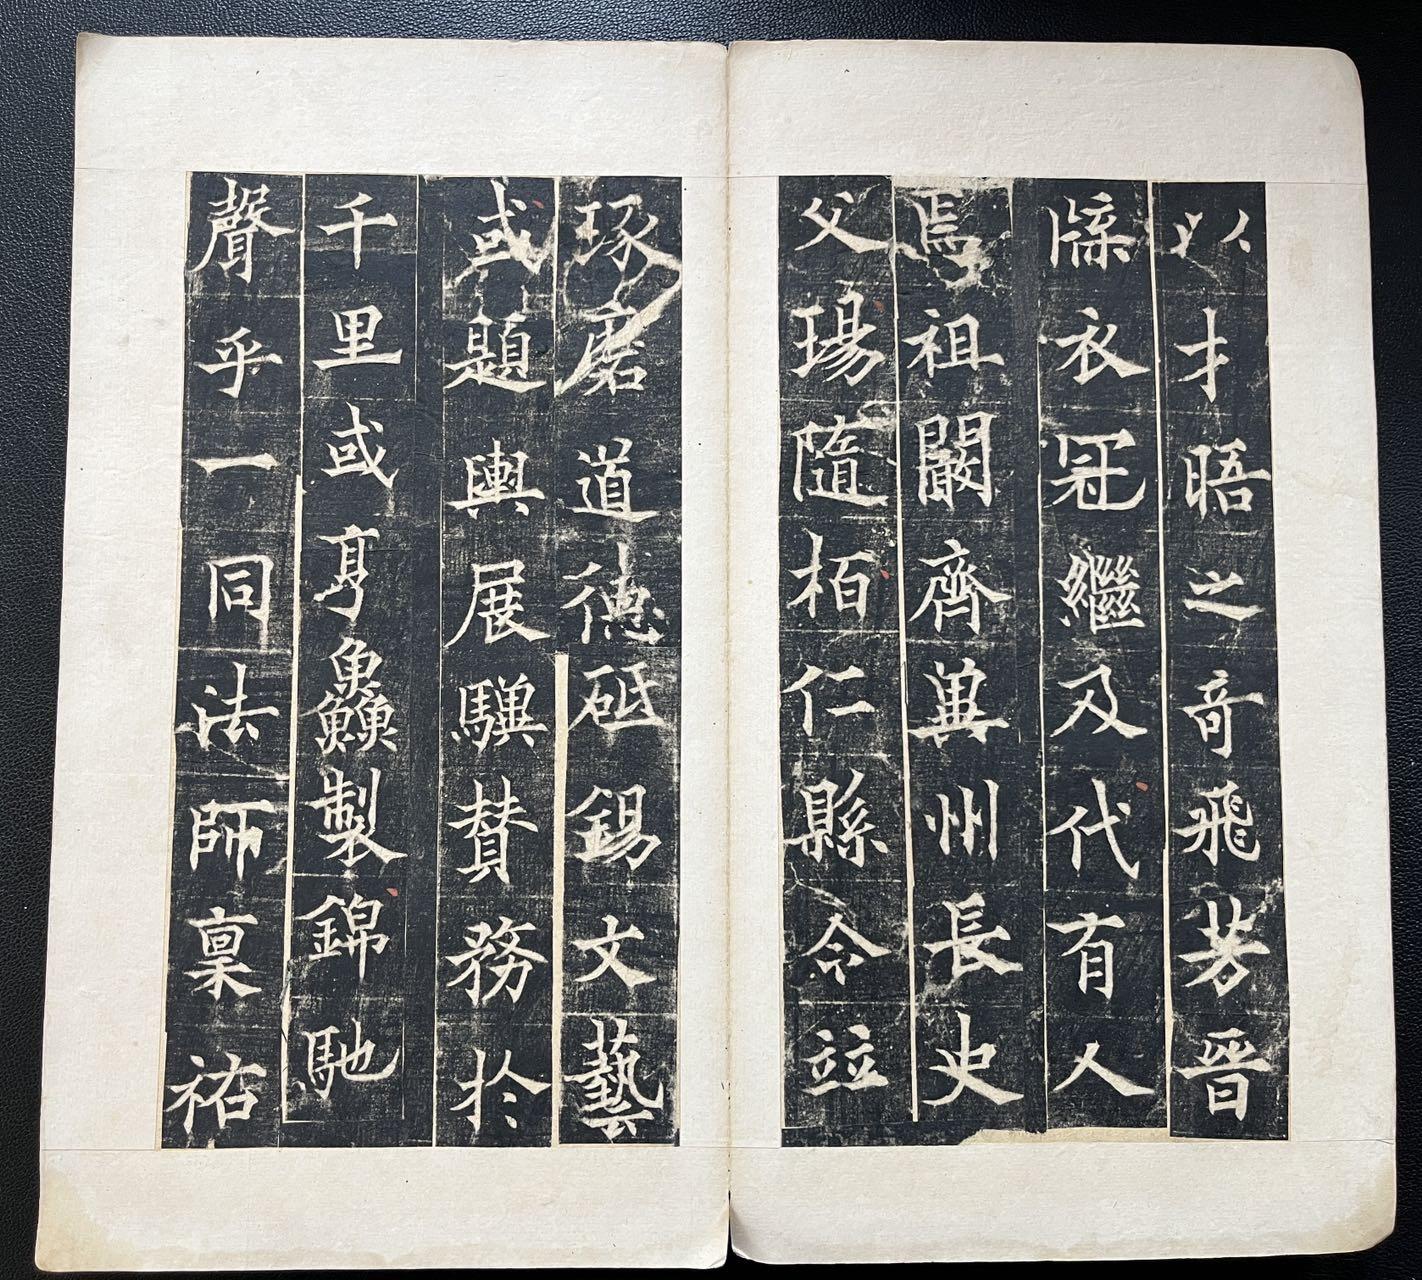 以才晤之奇飛芳晉
牒衣冠繼及代有人
焉祖闞齊兾州長史
父瑒隨栢仁縣令竝
琢磨道德砥錫文藝
或題輿展驥賛務於
千里或亨鱻製錦馳
聲乎一同法師稟祐